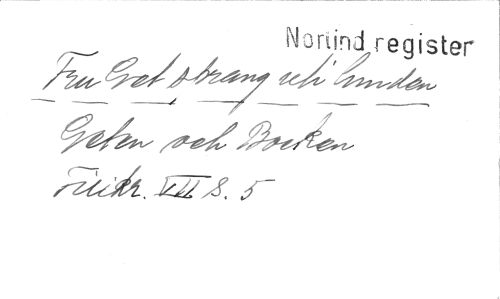 Norlind register
Fru Get sprang uti lunden
Geten och Bocken
VII S. 5